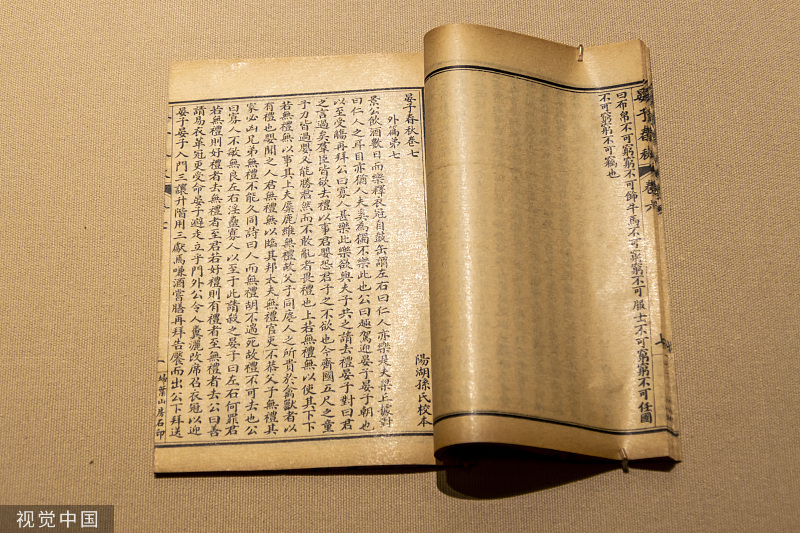 晏子春秋 卷六
曰布帛不可窮窮不可飾牛馬不可窮窮不可服士不可窮窮不可任國
不可窮窮不可竊也
晏子春秋卷七
外篇第七
陽湖孫氏校本
景公飲酒數日而樂釋衣冠自鼓缶謂左右曰仁人亦樂是夫梁丘據對
曰仁人之耳目亦猶人夫奚為獨不樂此也公曰趣駕迎晏子晏子朝
以至受觴再拜公曰寡人甚樂此樂欲與夫子共之請去禮晏子對曰君
之言過矣羣臣皆欲去禮以事君嬰恐君子之不欲也今齊國五尺之童
子力皆過嬰又能勝君然而不敢亂者畏禮也上若無禮無以使其下下
若無禮無以事其上夫麋鹿維無禮故父子同麀人之所貴於禽獸者以
有禮也嬰聞之人君無禮無以臨其邦大夫無禮官吏不恭父子無禮其
家必凶兄弟無禮不能久同詩曰人而無禮胡不遄死故禮不可去也公
曰寡人不敏無良左右淫蠱寡人以至于此請殺之晏子曰左右何罪君
若無禮則好禮者去無禮者至君若好禮則有禮者至無禮者去公曰善
請易衣革冠更受命晏子避走立乎門外公令人糞灑改席召衣冠以迎
晏子晏子入門三讓升階用三獻焉嗛酒嘗膳再拜告饜而出公下拜送
一 掃葉山房石印
视觉中国